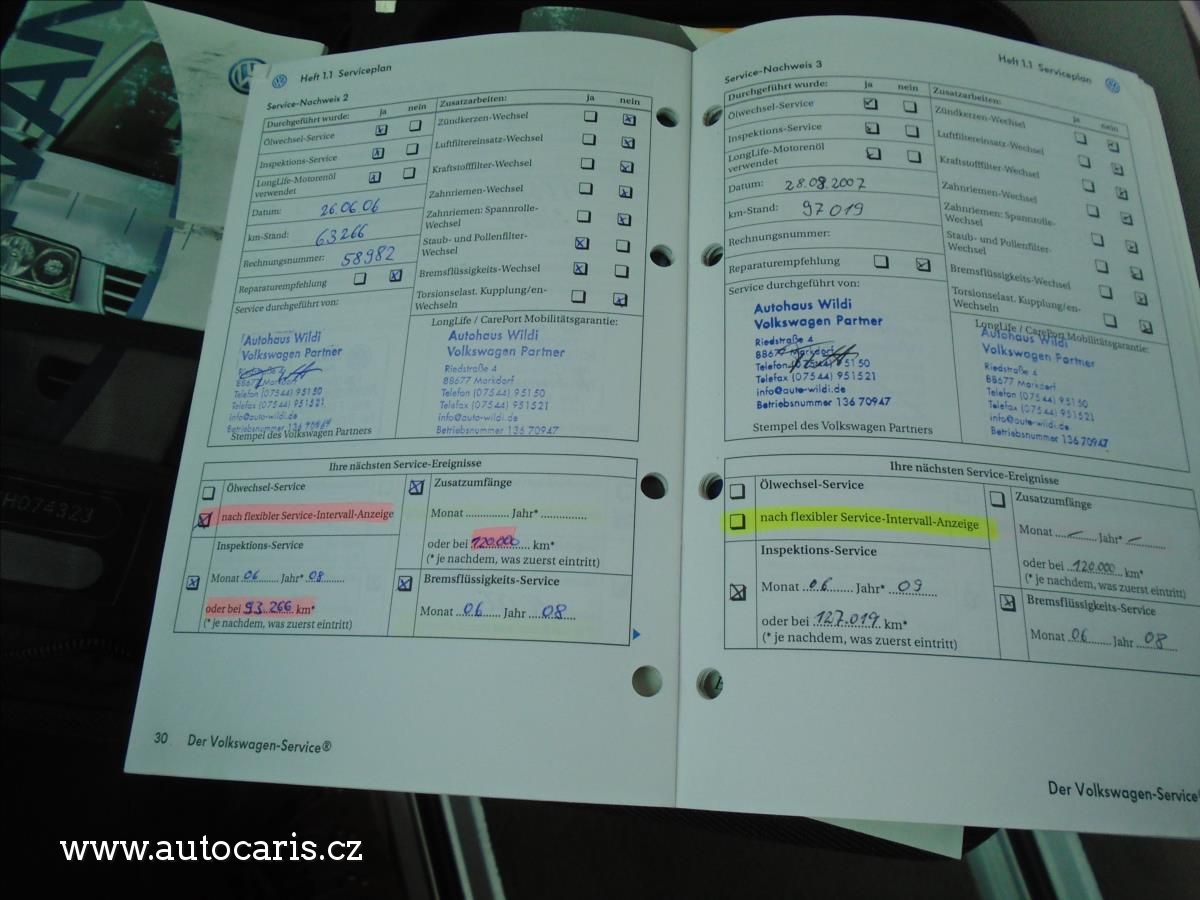 Heft 1.1 Serviceplan
Service-Nachweis 2
Durchgeführt wurde: ja nein
Ölwechsel-Service
Inspektions-Service
LongLife-Motorenöl
verwendet
Datum: 26.06.06
km-Stand: 63266
Rechnungsnummer: 58982
Reparaturempfehlung
Service durchgeführt von:
Autohaus Wildi
Volkswagen Partner
Riedstraße 4
88677 Markdorf
Telefon (07544) 95150
Telefax (07544) 951521
info@auto-wildi.de
Betriebsnummer 136 70947
Stempel des Volkswagen Partners
Zusatzarbeiten: ja nein
Zündkerzen-Wechsel
Luftfiltereinsatz-Wechsel
Kraftstofffilter-Wechsel
Zahnriemen-Wechsel
Zahnriemen: Spannrolle-
Wechsel
Staub- und Pollenfilter-
Wechsel
Bremsflüssigkeits-Wechsel
Torsionselast. Kupplung/en-
Wechseln
LongLife / CarePort Mobilitätsgarantie:
Autohaus Wildi
Volkswagen Partner
Riedstraße 4
88677 Markdorf
Telefon (07544) 95150
Telefax (07544) 951521
info@auto-wildi.de
Betriebsnummer 136 70947
Ihre nächsten Service-Ereignisse
Ölwechsel-Service
nach flexibler Service-Intervall-Anzeige
Inspektions-Service
Monat 06 Jahr* 08
oder bei 93.266 km*
(* je nachdem, was zuerst eintritt)
Zusatzumfänge
Monat .............. Jahr* ...............
oder bei 120.000 km*
(* je nachdem, was zuerst eintritt)
Bremsflüssigkeits-Service
Monat 06 Jahr 08
30 Der Volkswagen-Service®
Heft 1.1 Serviceplan
Service-Nachweis 3
Durchgeführt wurde: ja nein
Ölwechsel-Service
Inspektions-Service
LongLife-Motorenöl
verwendet
Datum: 28.08.2007
km-Stand: 97019
Rechnungsnummer:
Reparaturempfehlung
Service durchgeführt von:
Autohaus Wildi
Volkswagen Partner
Riedstraße 4
88677 Markdorf
Telefon (07544) 95150
Telefax (07544) 951521
info@auto-wildi.de
Betriebsnummer 136 70947
Stempel des Volkswagen Partners
Zusatzarbeiten: ja nein
Zündkerzen-Wechsel
Luftfiltereinsatz-Wechsel
Kraftstofffilter-Wechsel
Zahnriemen-Wechsel
Zahnriemen: Spannrolle-
Wechsel
Staub- und Pollenfilter-
Wechsel
Bremsflüssigkeits-Wechsel
Torsionselast. Kupplung/en-
Wechseln
LongLife / CarePort Mobilitätsgarantie:
Autohaus Wildi
Volkswagen Partner
Riedstraße 4
88677 Markdorf
Telefon (07544) 95150
Telefax (07544) 951521
info@auto-wildi.de
Betriebsnummer 136 70947
Ihre nächsten Service-Ereignisse
Ölwechsel-Service
nach flexibler Service-Intervall-Anzeige
Inspektions-Service
Monat 06 Jahr* 09
oder bei 127.019 km*
(* je nachdem, was zuerst eintritt)
Zusatzumfänge
Monat ..–.. Jahr* ..–..
oder bei 120.000 km*
(* je nachdem, was zuerst eintritt)
Bremsflüssigkeits-Service
Monat 06 Jahr 08
Der Volkswagen-Service
H074323
www.autocaris.cz